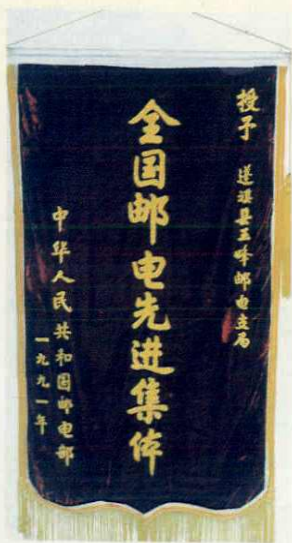 授予 遂溪县五峰邮电支局
全国邮电先进集体
中华人民共和国邮电部
一九九一年